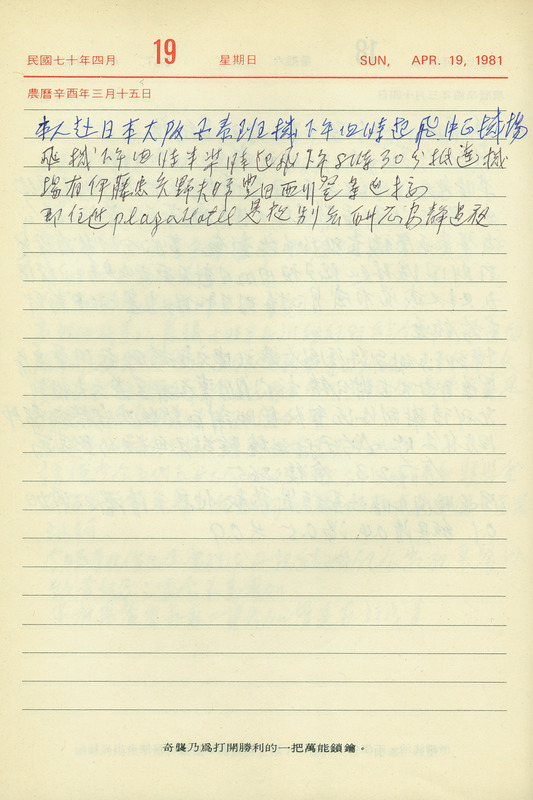 民國七十年四月 19 星期日 SUN, APR. 19, 1981
農曆辛酉年三月十五日
本人赴日本大阪 班機下午四時起飛中正機場
飛機下午四時半 起飛下午8時30分抵達機
場有伊藤忠矢野夫婦豊田西川 等迎接
即住進plaza Hotel 是晚 過夜
奇襲乃爲打開勝利的一把萬能鎖鑰。